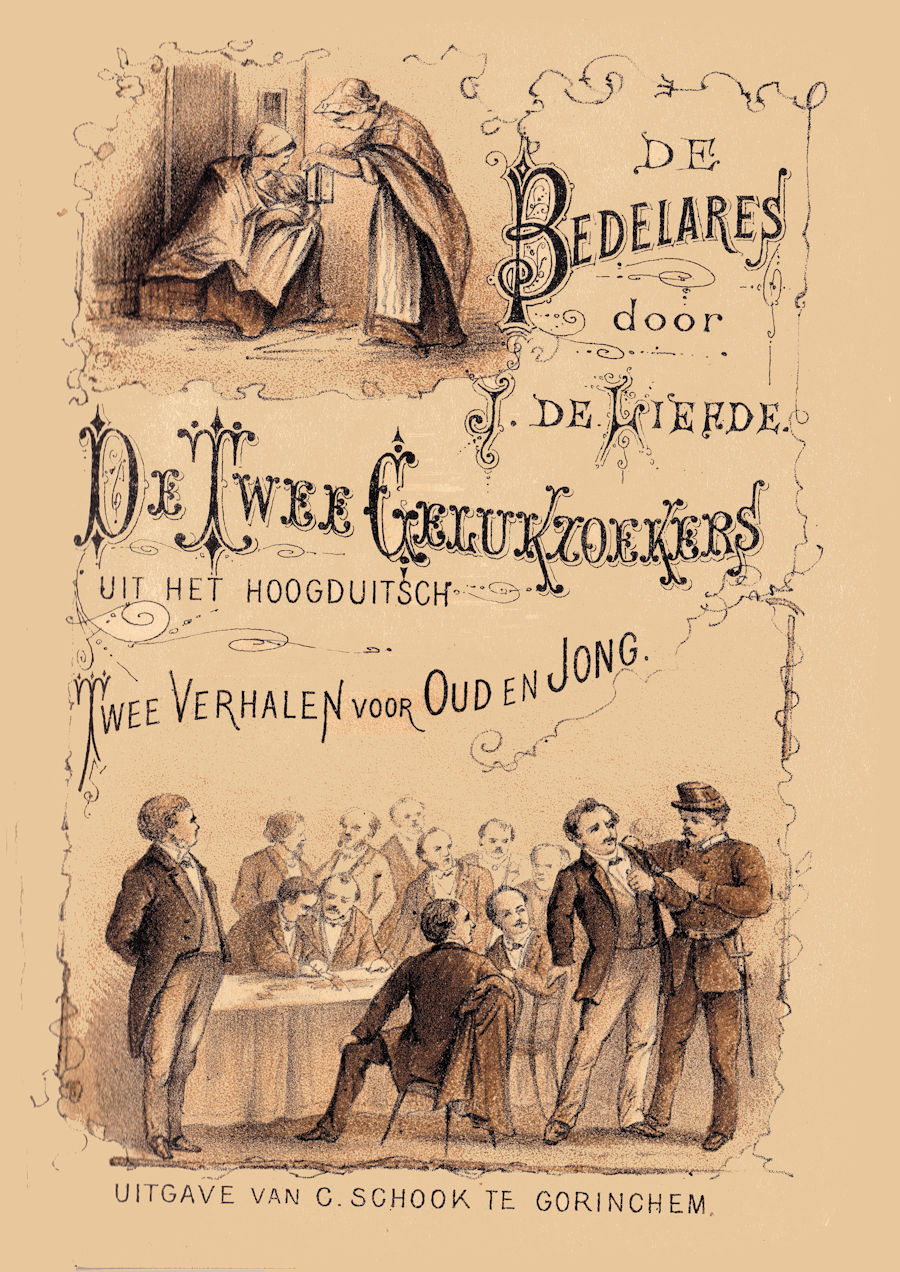 DE
BEDELARES
door
J. DE LIEFDE.
DE TWEE GELUKZOEKERS
UIT HET HOOGDUITSCH
TWEE VERHALEN VOOR OUD EN JONG.
UITGAVE VAN C. SCHOOK TE GORINCHEM.